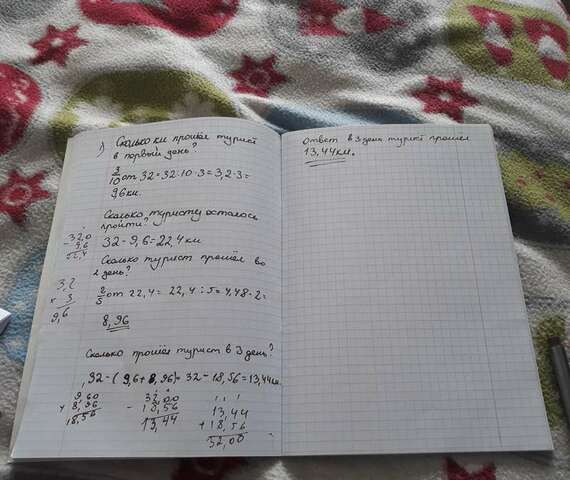 1) Сколько км прошёл турист
в первый день?
3/10 от 32 = 32 : 10 · 3 = 3,2 · 3 =
9,6 км.
Сколько туристу осталось
пройти?
32,0
- 9,6
22,4
32 - 9,6 = 22,4 км
Сколько турист прошёл во
2 день?
3,2
× 3
9,6
2/5 от 22,4 = 22,4 : 5 = 4,48 · 2 =
8,96
Сколько прошёл турист в 3 день?
32 - (9,6 + 8,96) = 32 - 18,56 = 13,44 км
9,60
+ 8,96
18,56
32,00
- 18,56
13,44
13,44
+ 18,56
32,00
Ответ в 3 день турист прошёл
13,44 км.